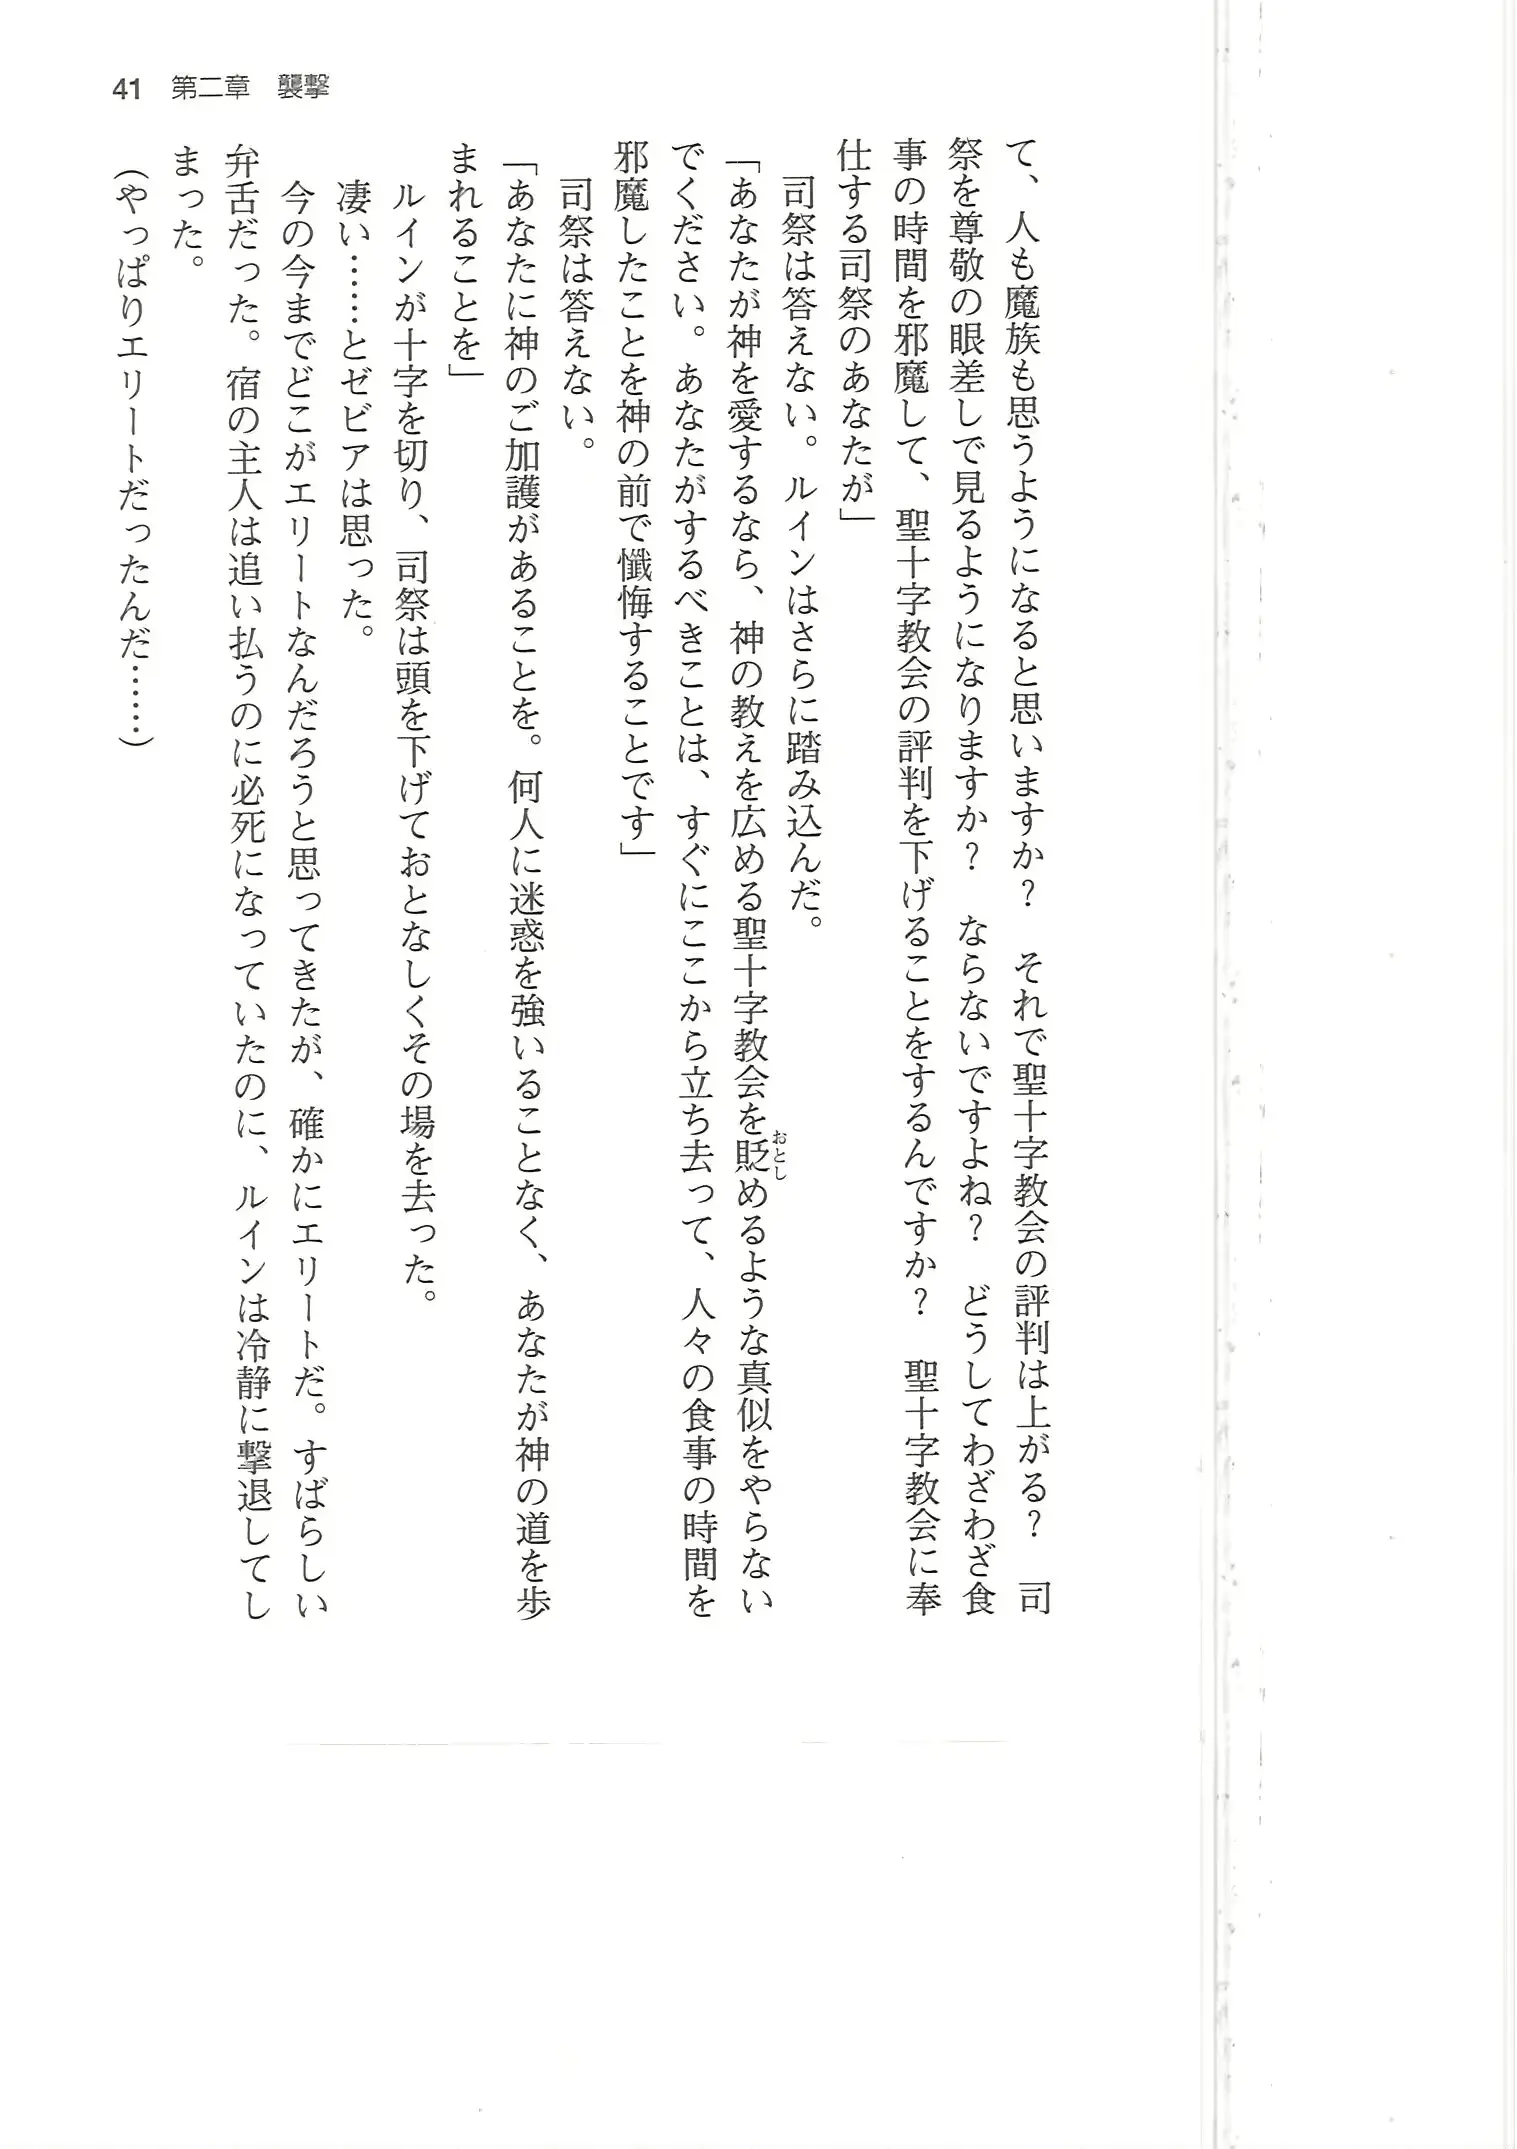 41　第二章　襲撃
て、人も魔族も思うようになると思いますか？　それで聖十字教会の評判は上がる？　司
祭を尊敬の眼差しで見るようになりますか？　ならないですよね？　どうしてわざわざ食
事の時間を邪魔して、聖十字教会の評判を下げることをするんですか？　聖十字教会に奉
仕する司祭のあなたが」
　司祭は答えない。ルインはさらに踏み込んだ。
「あなたが神を愛するなら、神の教えを広める聖十字教会を貶めるような真似をやらない
おとし
でください。あなたがするべきことは、すぐにここから立ち去って、人々の食事の時間を
邪魔したことを神の前で懺悔することです」
　司祭は答えない。
「あなたに神のご加護があることを。何人に迷惑を強いることなく、あなたが神の道を歩
まれることを」
　ルインが十字を切り、司祭は頭を下げておとなしくその場を去った。
　凄い……とゼビアは思った。
　今の今までどこがエリートなんだろうと思ってきたが、確かにエリートだ。すばらしい
弁舌だった。宿の主人は追い払うのに必死になっていたのに、ルインは冷静に撃退してし
まった。
（やっぱりエリートだったんだ……）